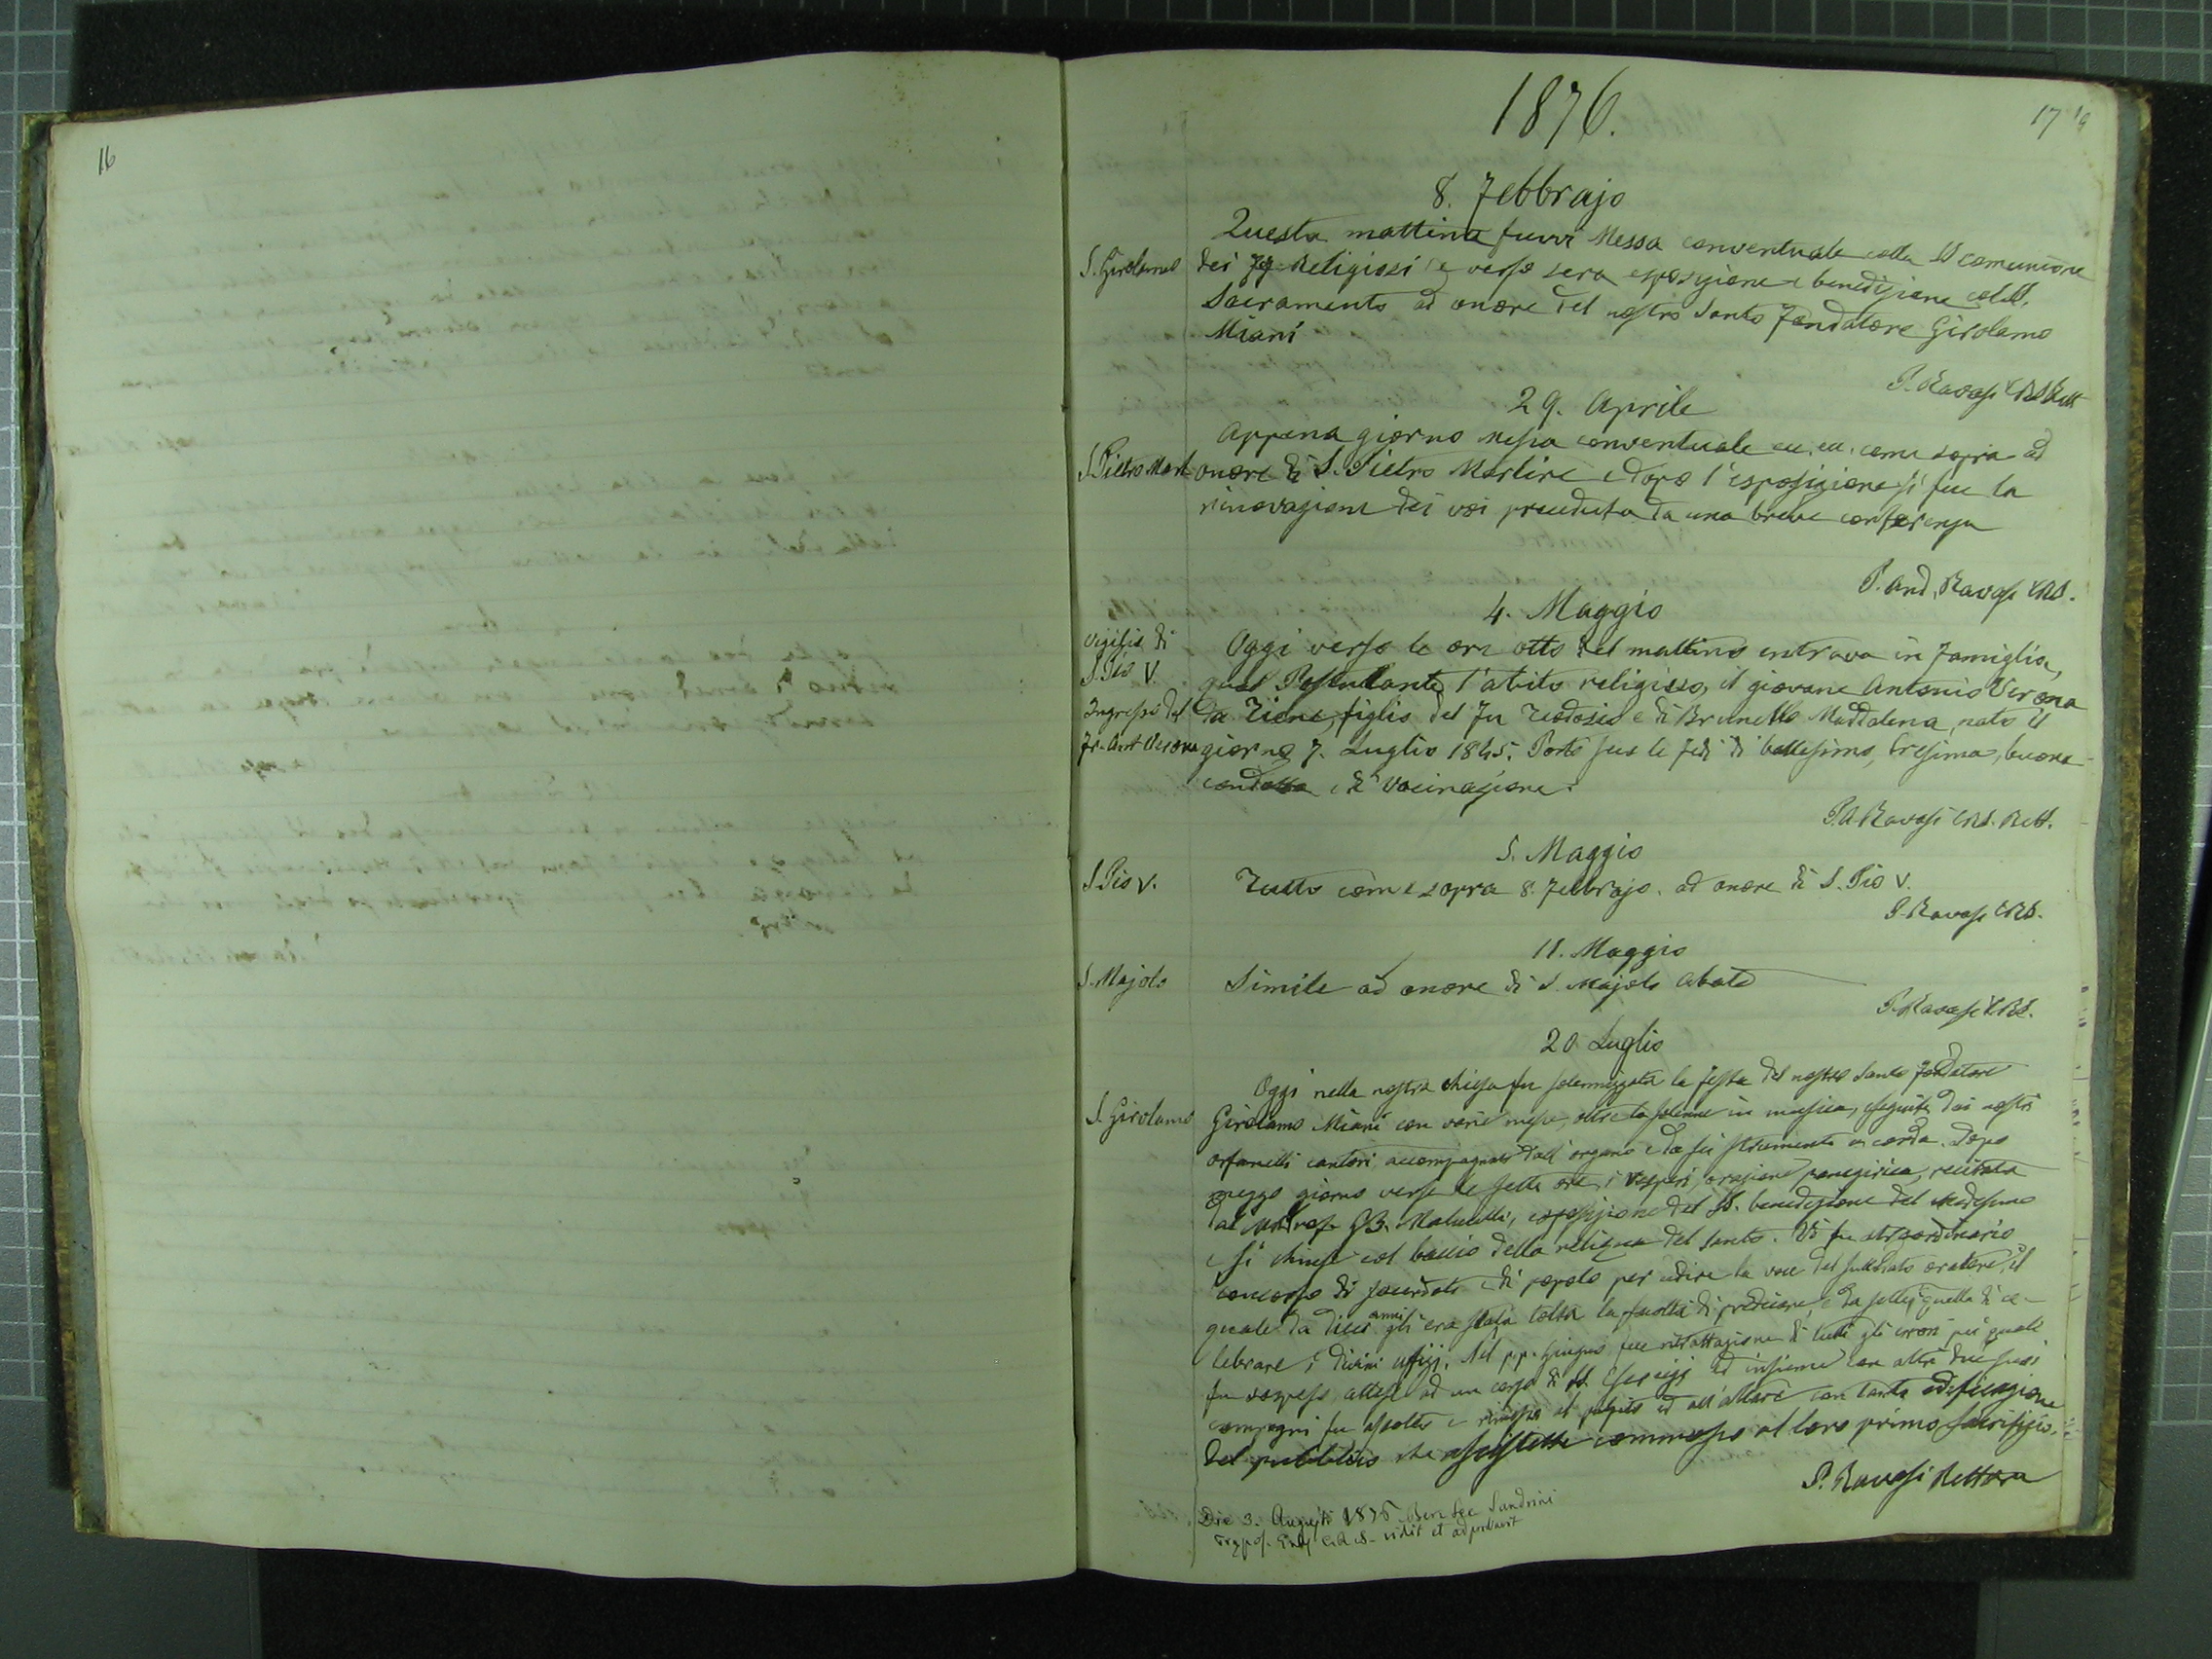 16
17 19
1876.
8. Febbrajo
Questa mattina fuvvi Messa conventuale colla SS comunione
S. Girolamo
dei Religiosi e verso sera esposizione e benedizione col SS.
Sacramento ad onore del nostro Santo Fondatore Girolamo
Miani
P. Ravasi CRS Rett
29. Aprile
Appena giorno messa conventuale ec. ec. come sopra ad
S. Pietro Mart
onore di S. Pietro Martire e dopo l'esposizione si fece la
rinovazione dei voi preceduta da una breve conferenza
P. And. Ravasi CRS.
4. Maggio
Vigilia di
S. Pio V.
Ingresso del
Fr. Ant Verona
Oggi verso le ore otto del mattino entrava in famiglia,
qual Postulante l'abito religioso, il giovane Antonio Verona
da Tiene, figlio del fu Teodosio e di Brunello Maddalena, nato il
giorno 7. Luglio 1845. Portò seco le fedi di battesimo, Cresima, buona
condotta e di vaccinazione.
P. A. Ravasi CRS. Rett.
5. Maggio
S. Pio V.
Tutto come sopra 8. Febbrajo. ad onore di S. Pio V.
P. Ravasi CRS.
11. Maggio
S. Majolo
Simile ad onore di S. Majolo Abate
P. Ravasi CRS.
20 Luglio
Oggi nella nostra chiesa fu solennizzata la festa del nostro Santo Fondatore
S. Girolamo
Girolamo Miani con varie messe, oltre la solenne in musica, eseguita dai nostri
orfanelli cantori accompagnati dall'organo e da sei strumenti a corda. Dopo
mezzo giorno verso le sette ore i vesperi, orazione panegirica, recitata
dal Prof. GB. esposizione del SS. benedizione del medesimo
e si chiuse col baccio della reliquia del Santo. Vi fu straordinario
concorso di sacerdoti e di popolo per udire la voce del sullodato oratore, il
quale da dieci anni gli era stata tolta la facoltà di predicare, e da sette quella di ce-
lebrare i divini uffizj. Nel p.p. Giugno fece ritrattazione di tutti gli errori pei quali
fu sospeso, attese ad un corso di SS. Esercizj ed insieme con altri due suoi
compagni fu assolto e rimesso al pulpito ed all'altare con tanta edificazione
del pubblico che assistette commosso al loro primo sacrifizio.
P. Ravasi Rettore
Die 3. Augusti 1876 Sandrini
Praepos. Gnlis C.R.S. vidit et adprobavit